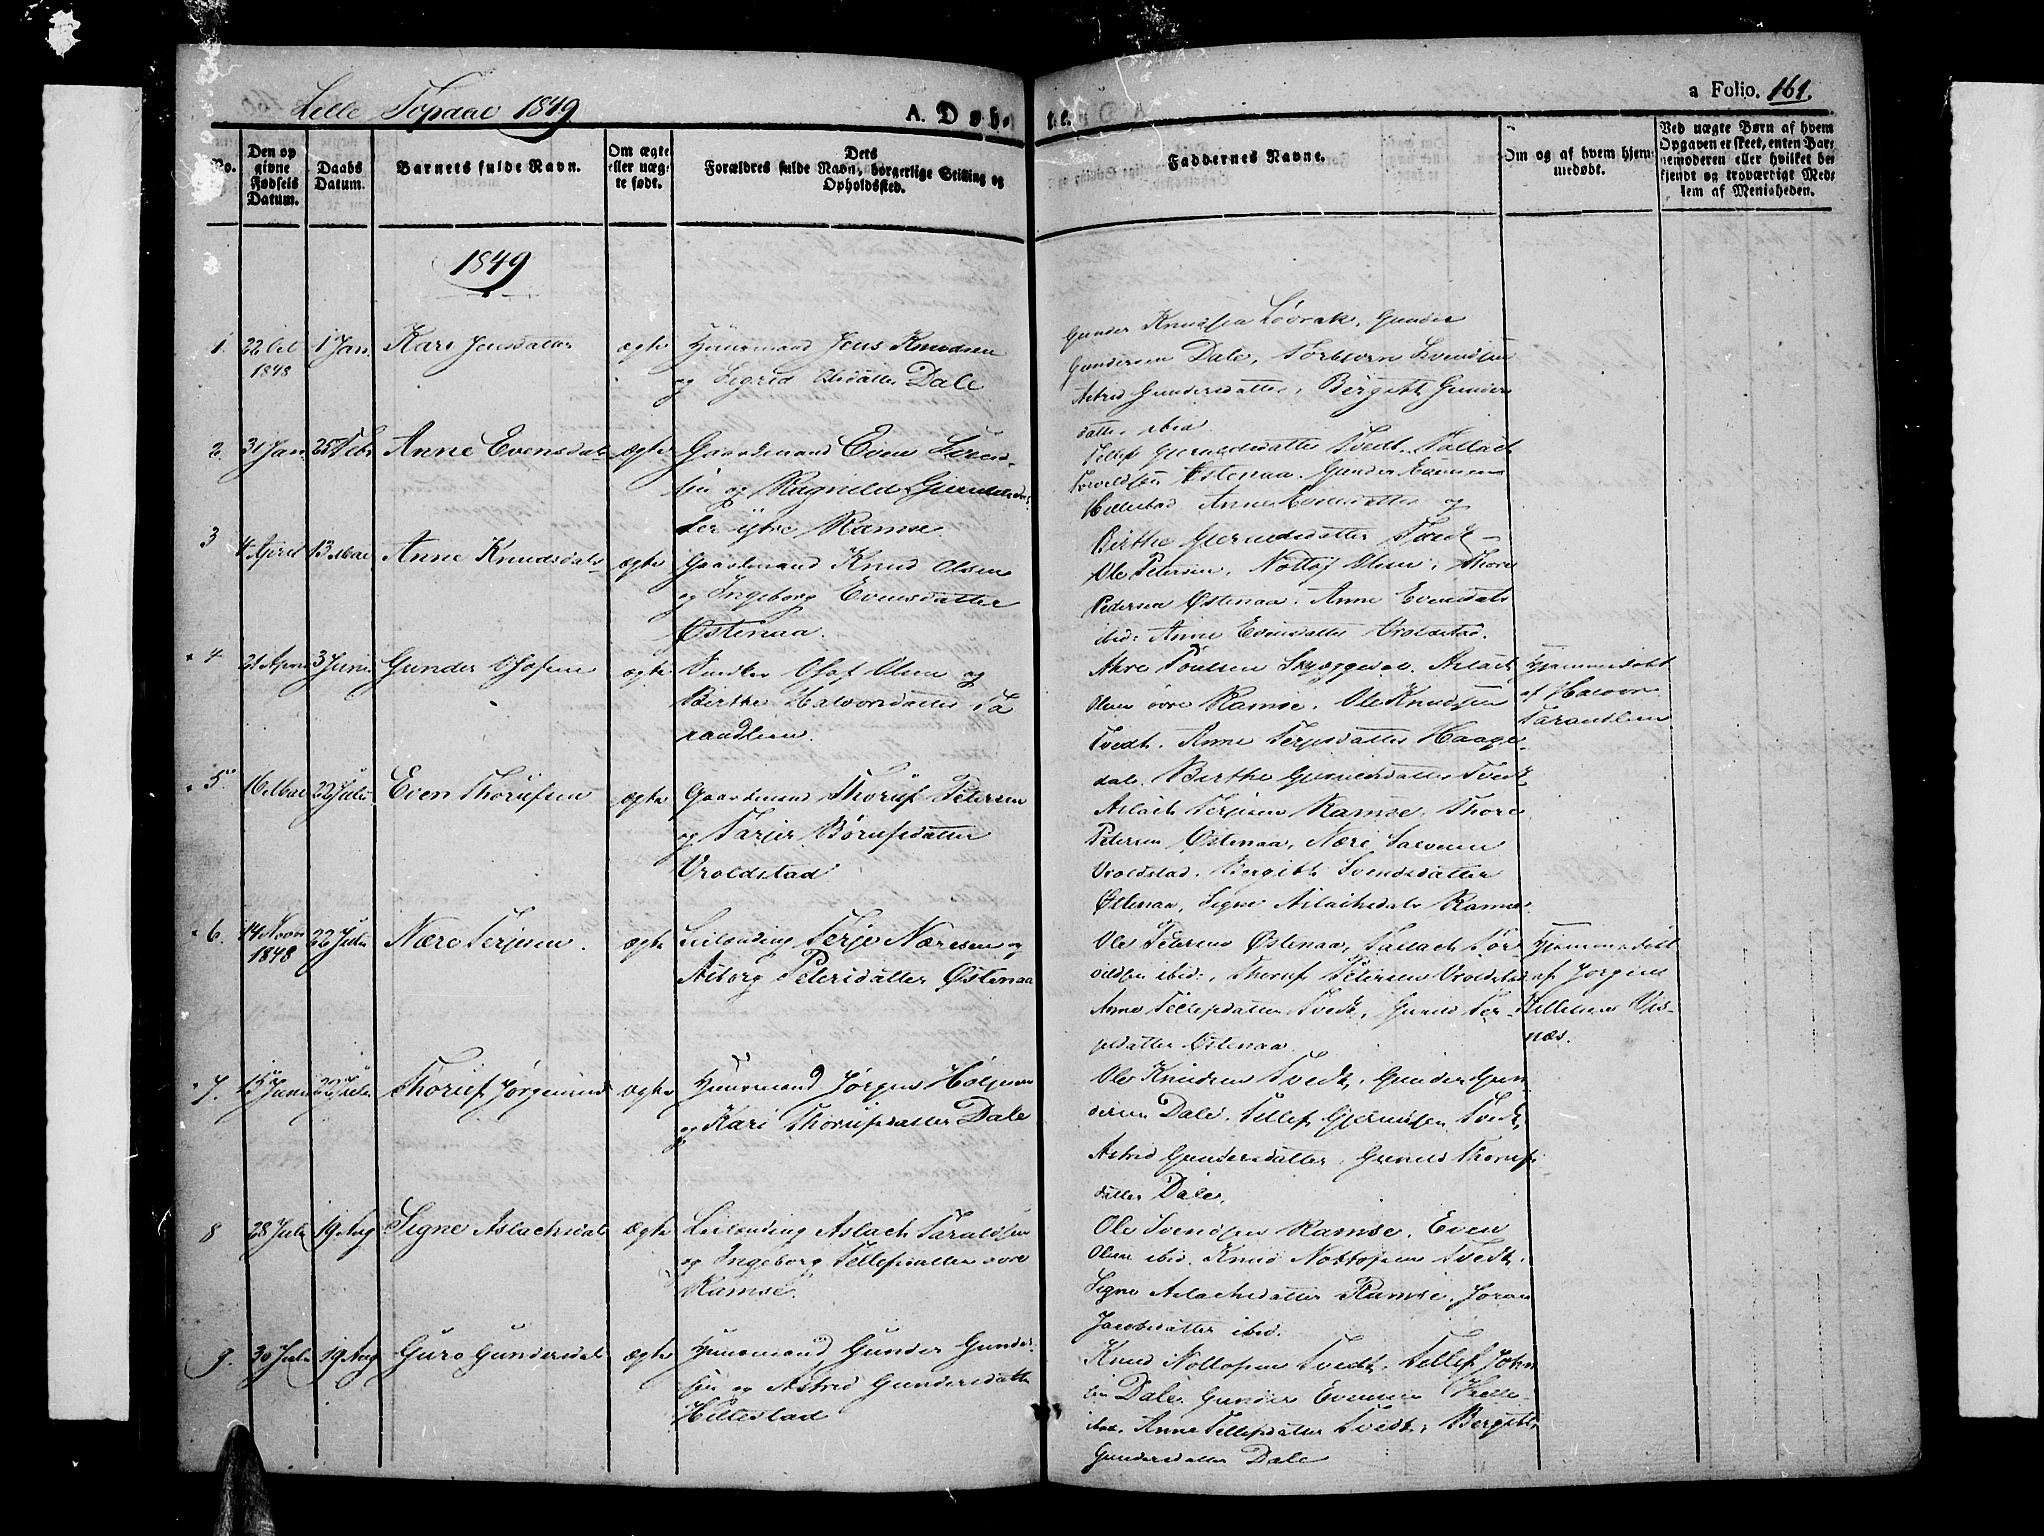 Lille Topdal 1849
A. Døbte.
a Folio. 161.
No.
Den opgivne Fødsels Datum.
Daabs Datum.
Barnets fulde Navn.
Om ægte eller uægte født.
Dets Forældres fulde Navn, borgerlige Stilling og Opholdssted.
Faddernes Navne.
Om og af hvem hjemmedøbt.
Ved uægte Børn af hvem Opgaven er skeet, enten Barnemoderen eller hvilket bekjendt og troværdigt Medlem af Menigheden.
1849
1. 22 Det 1848
1 Jan.
Kari Jensdatter
ægte
Huusmand Jens Knudsen
og Sigrid Olsdatter Dale
Gunder Knudsen Løvrak, Gunder
Gundersen Dale, Torbjørn Svendsen
Astrid Gundersdatter, Bergith Gunders
datter ibid
2. 31 Jan.
25 Febr
Anne Evensdat-
ægte
Gaardmand Even Svend-
sen og Ragnild Gjermundsdat-
ter ytre Ramse
Tellef Gjermundsdatter Tvedt, Tallach
Torvildsen Østenaa. Gunder Evensen
Hillestad Anne Evensdatter og
Birthe Gjermundsdatter Tvedt
3 4 April
13 Mai
Anne Knudsdat-
ægte
Gaardmand Knud Olsen
og Ingeborg Evensdatter
Østenaa.
Ole Petersen, Nottof Olsen, Thore
Pedersen Østenaa. Anne Evensdat
ibid. Anne Evensdatter Vroldstad.
4 21 April
3 Juni
Gunder Olofsen
ægte
Olof Olsen og
Birthe Halvorsdatter Ta
randlien.
Poulsen Skjeggedal. Aslach
Olsen øvre Ramse. Ole Knudsen
Tvedt. Anne Terjesdatter Haage-
dal. Birthe Gjermundsdatter Tvedt
Hjemmedøbt
af Halvor
Tarandlien
5 16 Mai
22 Juli
Even Thorufsen
ægte
Gaardmand Thoruf Petersen
og Tarjer Børufsdatter
Vroldstad
Aslach Terjesen Ramse, Thore
Petersen Østenaa, Nære Salvesen
Vroldstad. Bergith Svendsdatter
Østenaa, Signe Aslachsdat Ramse
6. 14 Novr 1848
22 Juli
Nære Terjesen.
ægte
Leilending Terje Næresen og
Asborg Petersdatter Østenaa
Ole Petersen Østenaa, Tallach Tor-
vildsen ibid, Thoruf Petersen Vroldstad
Anne Tellefsdatter Tvedt, Gunild Ter-
jesdatter Østenaa.
Hjemmedøbt
af Jørgine
Tellefsen Vps-
næs.
7. 15 Juni
22 Juli
Thoruf Jørgensen
ægte
Huusmand Jørgen Holjesen
og Kari Thorufsdatter Dale
Ole Knudsen Tvedt, Gunder Gun
dersen Dale, Tellef Gjermundsen Tvedt,
Astrid Gundersdatter, Gunild Thorufs
datter Dale.
8 28 Juli
19 Aug
Signe Aslachsdat
ægte
Leilending Aslach Taraldsen
og Ingeborg Tellefsdatter øvre
Ramse.
Ole Svendsen Ramse, Even
Olsen ibid. Knud Nottofsen Tvedt.
Signe Aslachsdatter Ramse, Joran
Jacobsdatter ibid.
9. 30 Juli
19 Aug
Guro Gundersdat
ægte
Huusmand Gunder Gunder-
sen og Astrid Gundersdatter
Hillestad
Knud Nottofsen Tvedt, Tellef John
sen Dale, Gunder Evensen Hille-
stad. Anne Tellefsdatter Tvedt, Bergith
Gundersdatter Dale